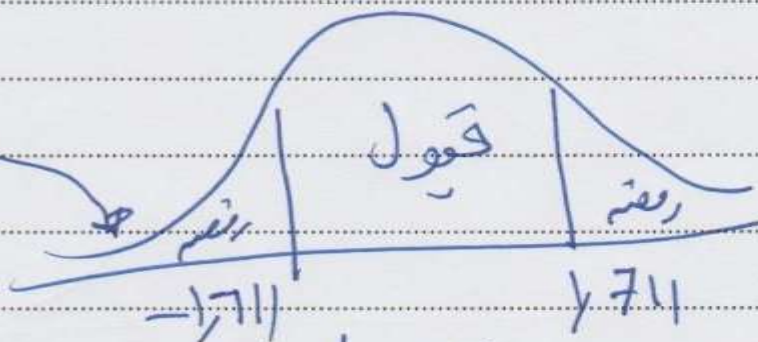 قبول
رفض رفض
-1,711 1,711